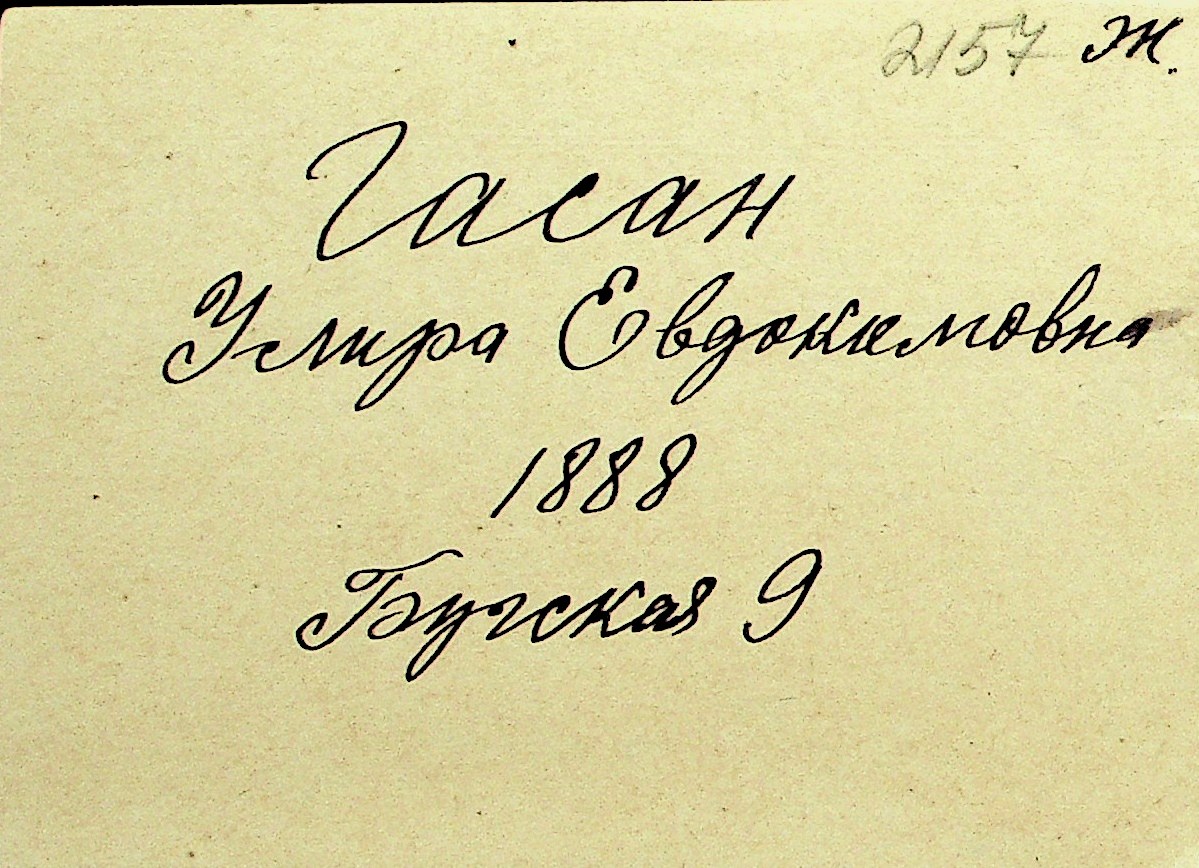 2157 Ж.
Гасан
Улира Евдокимовна
1888
Бугская 9